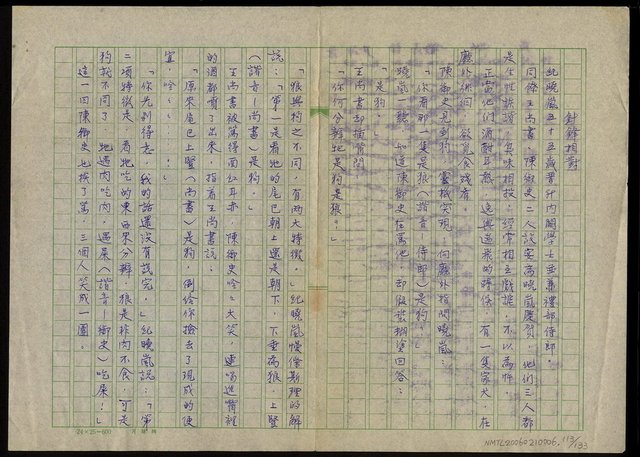 針鋒相對
紀曉嵐五十五歲累升內閣學士並兼禮部侍郎。
同僚王尚書、陳御史二人設宴為曉嵐慶賀，他們三人都
是生性詼諧，臭味相投，經常相互戲謔，不以為忤。
正當他們酒酣耳熱，逸興遄飛的時候，有一隻家犬，在
廳外徘徊，欲覓食殘脊。
陳御史見到狗，靈機突現，向廳外指問曉嵐：
「你看那一隻是狼（諧音｜侍郎）是狗？」
曉嵐一聽，知道陳御史在罵他，却假裝糊塗回答：
「是狗。」
王尚書却插嘴問：
「你何分辨牠是狗是狼。」
「狼與狗之不同，有兩大特徵。」紀曉嵐慢條斯理的解
說：「第一是看牠的尾巴朝上還是朝下，下垂為狼，上豎
（諧音｜尚書）是狗。」
王尚書被罵得面紅耳赤，陳御史哈哈大笑，連喝進嘴裡
的酒都噴了出來，指着王尚書說：
「原來尾巴上豎（尚書）是狗，倒給你撿去了現成的便
宜，哈……」
「你先別得意，我的話還沒有說完。」紀曉嵐說：「第
二項特徵是，看牠吃的東西來分辨，狼是非肉不食，可是
狗就不同了，牠遇肉吃肉，遇屎（諧音｜御史）吃屎！」
這一回陳御史也挨了罵，三個人笑成一團。
24×25=600
NMTL20060210006.
113/133